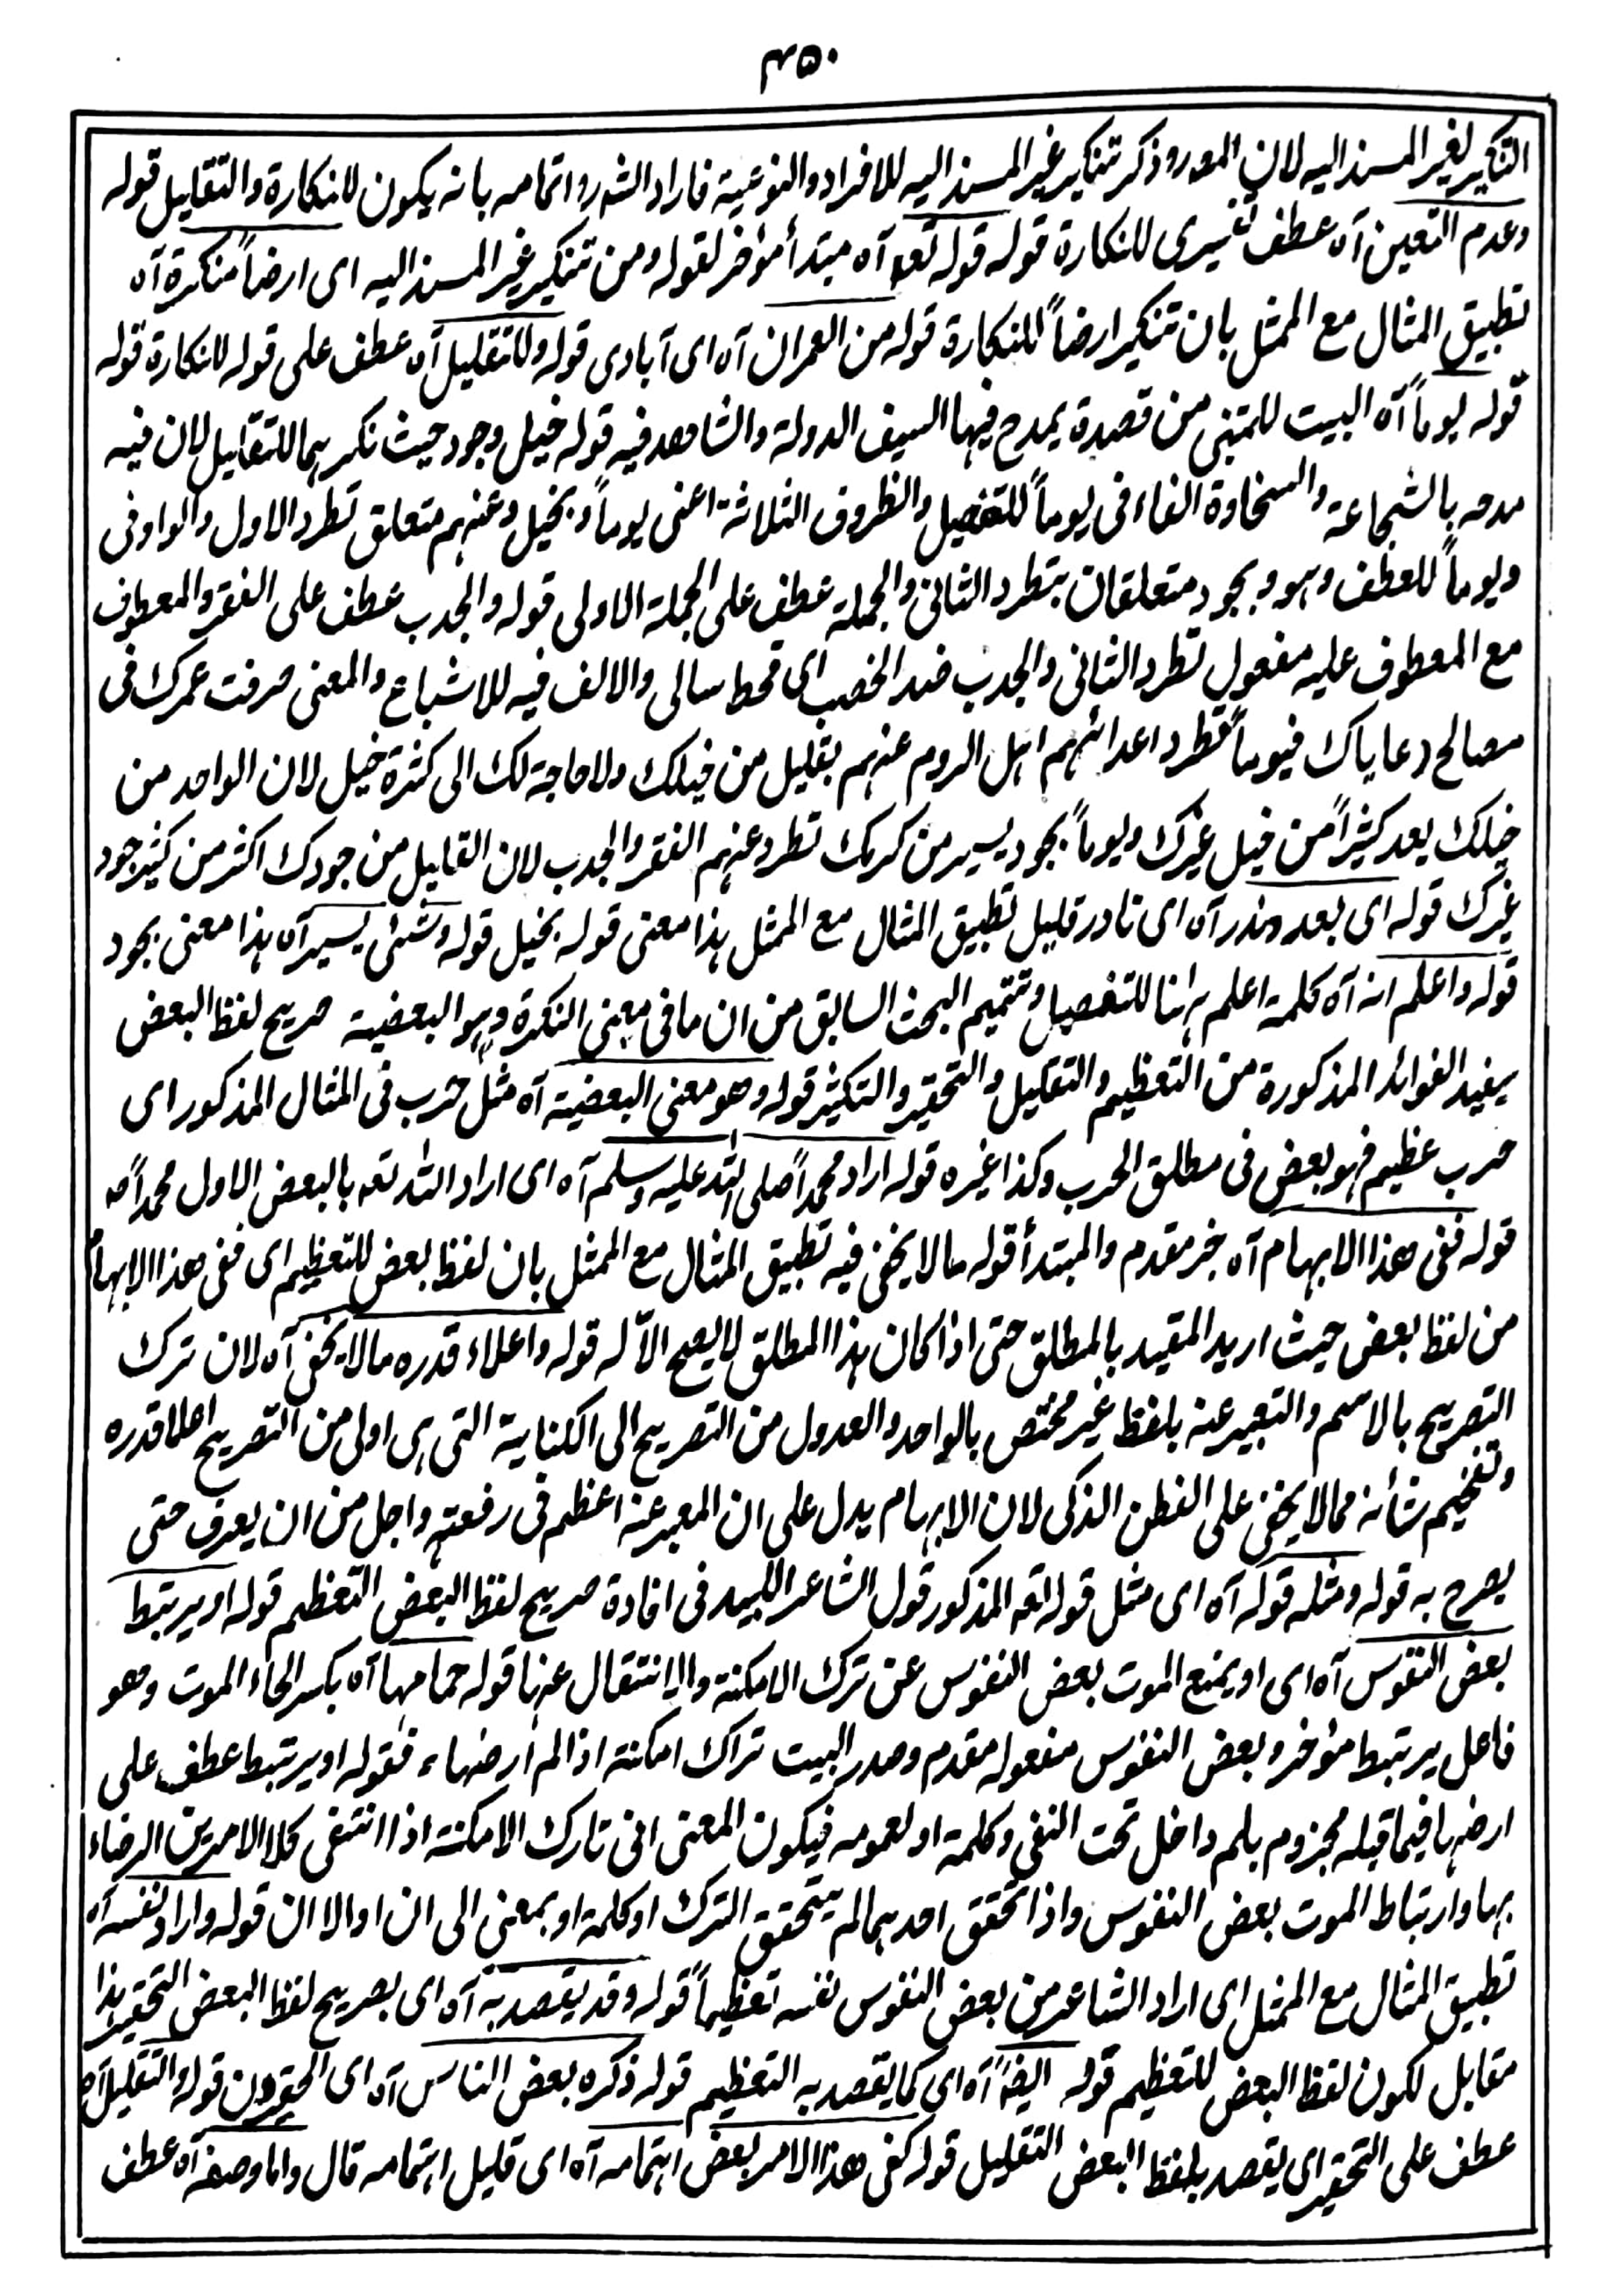 ۴۵۰
التنکیر لغیر المسند الیه لان المورد ذکر تنکیر غیر المسند الیه للافراد والنوعیة فاراد الشر واتمامه بانه یکون للنکارة والتقلیل قوله
وعدم التعین آه عطف تفسیری للنکارة قوله قوله تعه آه مبتدأ مؤخر لقوله ومن تنکیر غیر المسند الیه ای ارضاً منکرة آه
تطبیق المثال مع الممثل بان تنکیر ارضاً للنکارة قوله من العمران آه ای آبادی قوله وللتقلیل آه عطف علی قوله للنکارة قوله
قوله یوماً آه البیت للمتنبی من قصیدة یمدح فیها السیف الدولة والشاهد فیه قوله خیل وجود حیث نکر هما للتقلیل لان فیه
مدحه بالشجاعة والسخاوة الفاء فی یوماً للتفصیل والظروف الثلاثة اعنی یوماً وبخیل وعنهم متعلق تطرد الاول والواو فی
ویوماً للعطف وهو وبجود متعلقان بتطرد الثانی والجملة عطف علی الجملة الاولی قوله والجدب عطف علی الفقر والمعطوف
مع المعطوف علیه مفعول تطرد الثانی والجدب ضد الخصب ای قحط سالی والالف فیه للاشباع والمعنی صرفت عمرک فی
مصالح دعایاک فیوماً تطرد اعدائهم اهل الروم عنهم بقلیل من خیلک ولا حاجة لک الی کثرة خیل لان الواحد من
خیلک یعد کثیراً من خیل غیرک ویوماً بجود یسیر من کرمک تطرد عنهم الفقر والجدب لان القلیل من جودک اکثر من کثیر جود
غیرک قوله ای بعدد نذر آه ای نادر قلیل تطبیق المثال مع الممثل هذا معنی قوله بخیل قوله وشئی یسیر آه هذا معنی بجود
قوله واعلم انه آه کلمة اعلم هاهنا للتفصیل وتتمیم البحث السابق من ان ما فی معنی النکرة وهو البعضیة صریح لفظ البعض
یفید الفوائد المذکورة من التعظیم والتقلیل والتحقیر والتکثیر قوله وهو معنی البعضیة آه مثل حرب فی المثال المذکور ای
حرب عظیم فهو بعض فی مطلق الحرب وکذا غیره قوله اراد محمداً صلی الله علیه وسلم آه ای اراد الله تعه بالبعض الاول محمداً صه
قوله ففی هذا الابهام آه خبر مقدم والمبتدأ قوله مالا یخفی فیه تطبیق المثال مع الممثل بان لفظ بعض للتعظیم ای ففی هذا الابهام
من لفظ بعض حیث ارید المقید بالمطلق حتی اذا کان هذا المطلق لا یصح الاّ له قوله واعلاء قدره مالا یخفی آه لان ترک
التصریح بالاسم والتعبیر عنه بلفظ غیر مختص بالواحد والعدول من التصریح الی الکنایة التی هی اولی من التصریح اعلاقدره
وتفخیم شأنه مما لا یخفی علی الفطن الذکی لان الابهام یدل علی ان المعبر عنه اعظم فی رفعته واجل من ان یعرف حتی
یصرح به قوله ومثله قوله آه ای مثل قوله تعه المذکور قول الشاعر اللبید فی افادة صریح لفظ البعض التعظیم قوله او یرتبط
بعض النفوس آه ای او یمنع الموت بعض النفوس عن ترک الامکنة والانتقال عنها قوله حمامها آه بکسر الحاء الموت وهو
فاعل یرتبط مؤخر وبعض النفوس مفعوله مقدم وصدر البیت تراک امکنة اذا لم ارضها ء فقوله او یرتبط عطف علی
ارضها فیما قبله مجزوم بلم داخل تحت النفی وکلمة او لعمومه فیکون المعنی انی تارک الامکنة اذا انتفی کلا الامرین الرضاء
بها وارتباط الموت بعض النفوس واذا تحقق احدهما لم یتحقق الترک او کلمة او بمعنی الی ان او الا ان قوله واراد نفسه آه
تطبیق المثال مع الممثل ای اراد الشاعر من بعض النفوس نفسه تعظیماً قوله وقد یقصد به آه ای بصریح لفظ البعض التحقیر هذا
مقابل لکون لفظ البعض للتعظیم قوله ایضاً آه ای کما یقصد به التعظیم قوله ذکره بعض الناس آه ای الحقیرون قوله والتقلیل آه
عطف علی التحقیر ای یقصد بلفظ البعض التقلیل قوله کفی هذا الامر بعض اهتمامه آه ای قلیل اهتمامه قال واما وصفه آه عطف